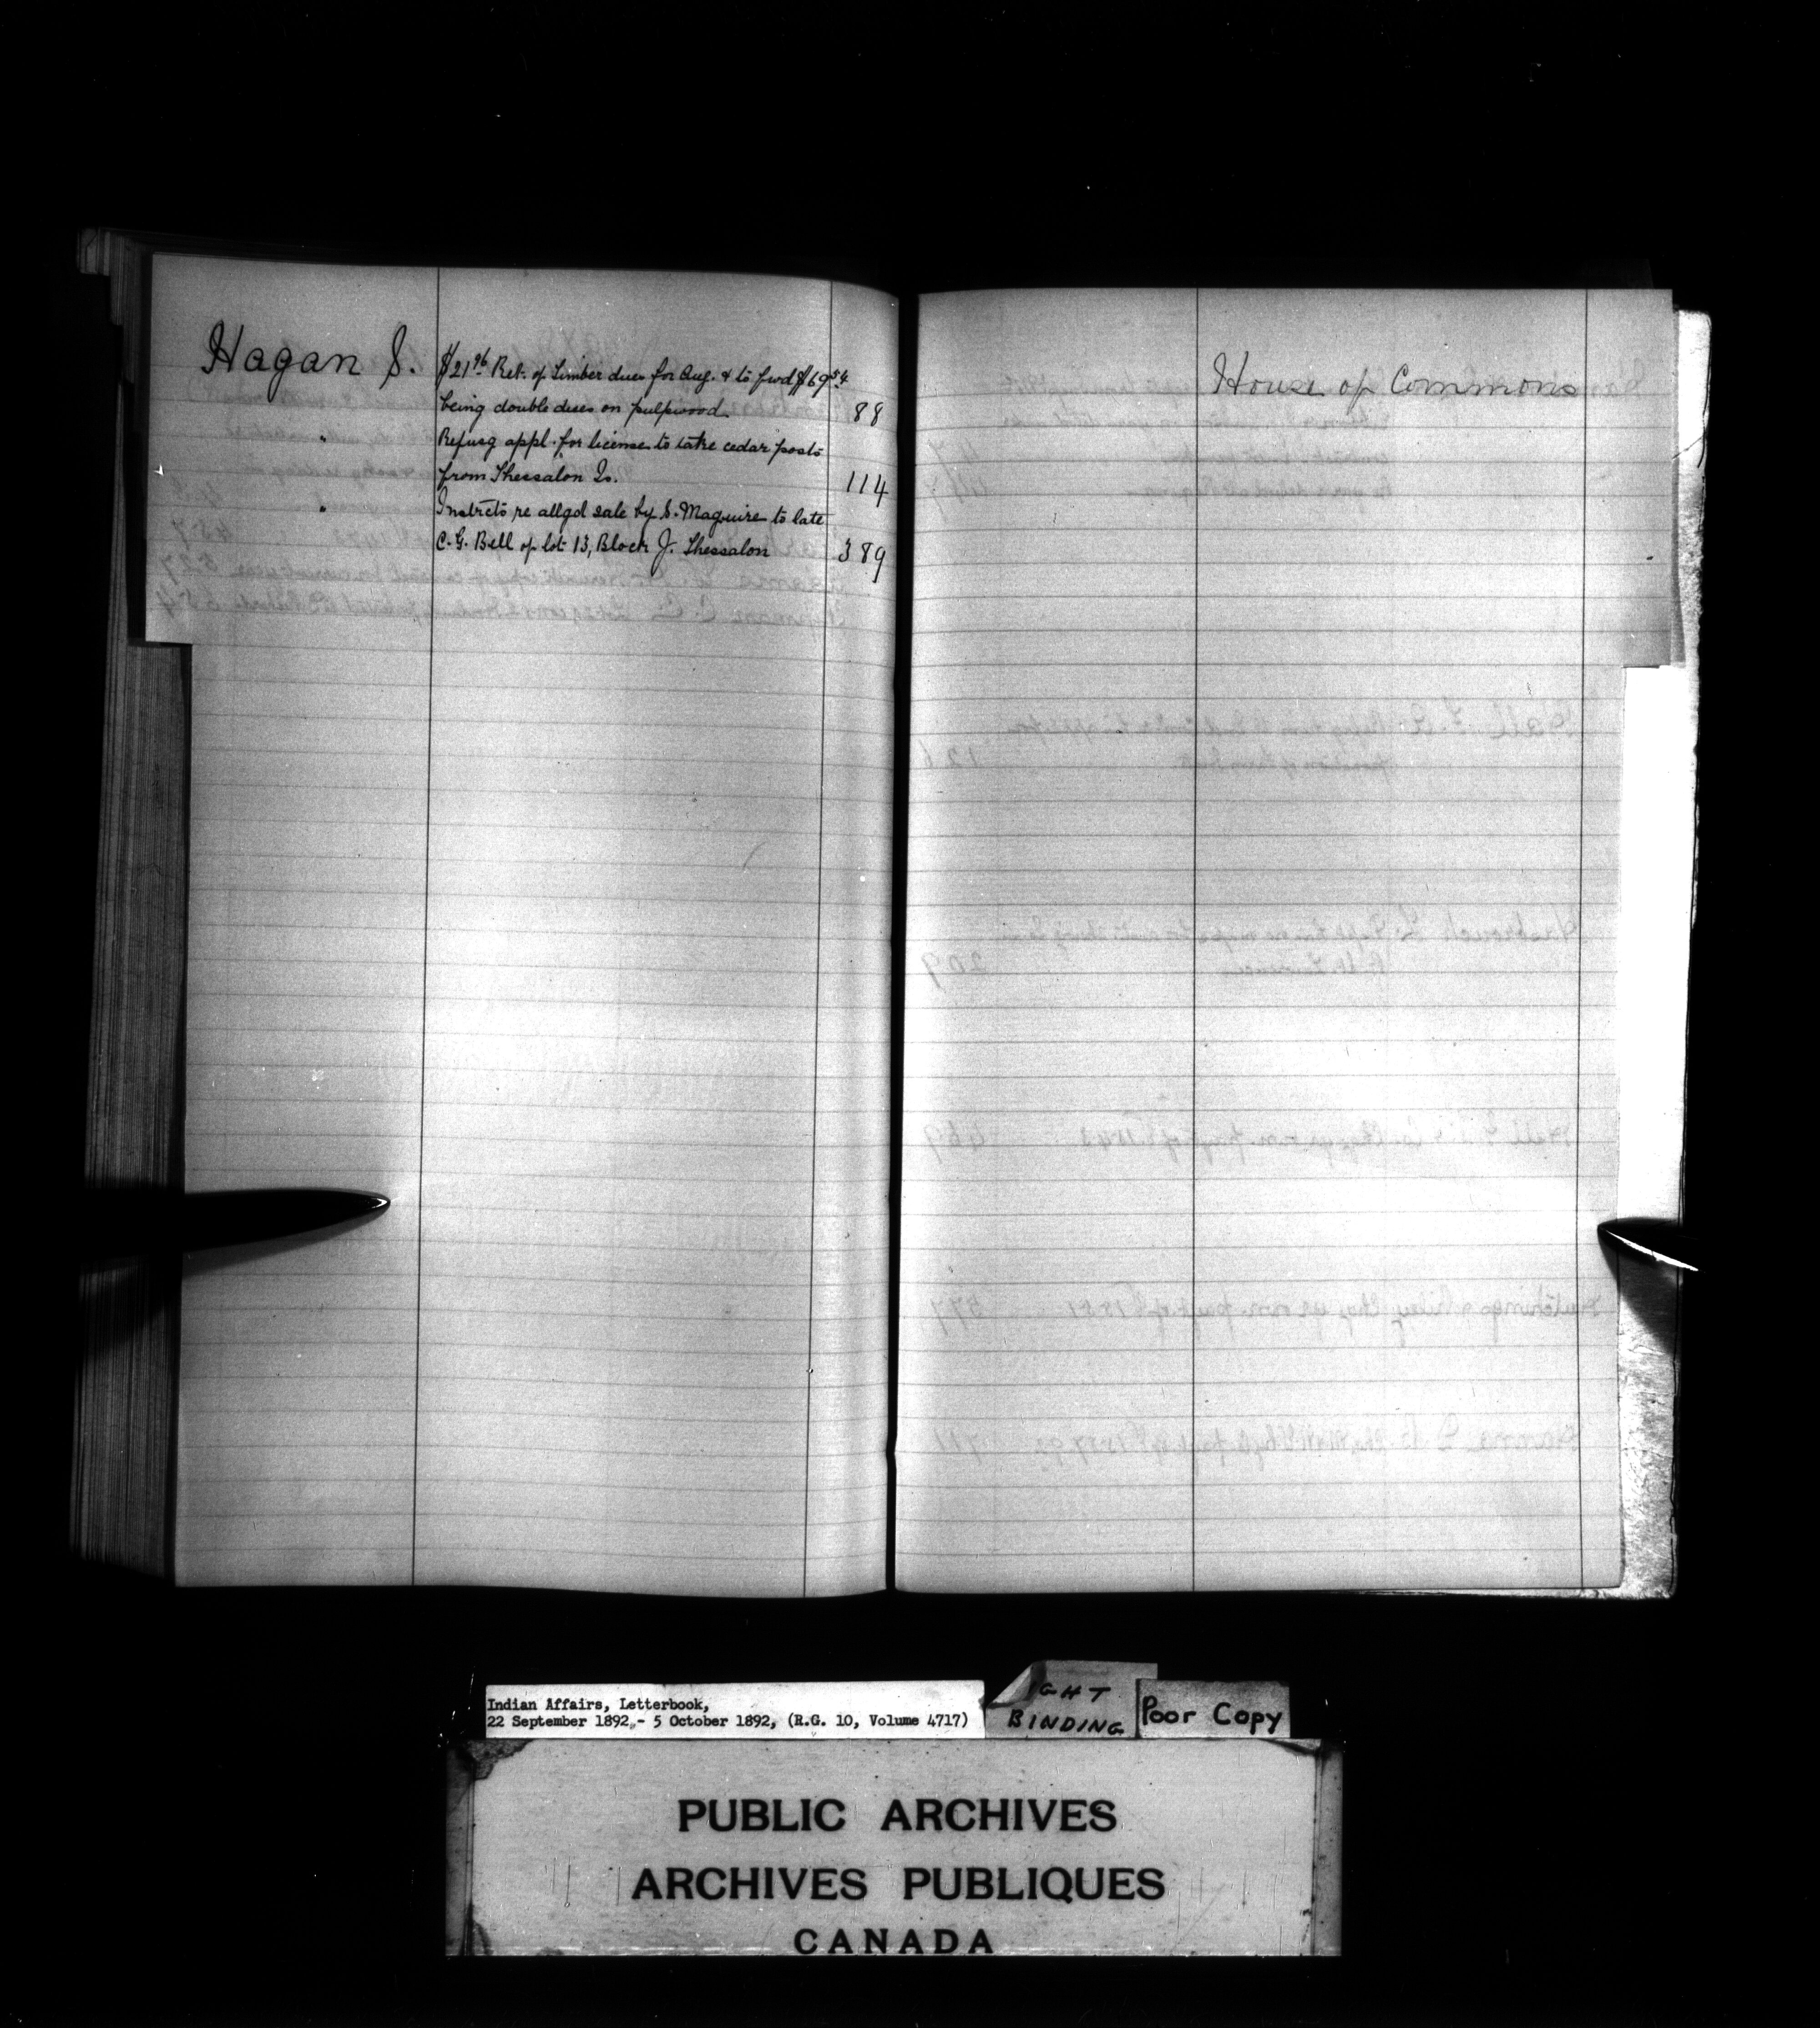 Hagan S. $21.96 Ret. of Timber dues for Aug. & to fwd $69.54
being double dues on pulpwood. 88
" Refusg appl. for license to take cedar posts
from Thessalon Is. 114
" Instrcts re allgd sale by S. Maguire to late
C. G. Bell of lot 13, Block J. Thessalon 389
House of Commons
Indian Affairs, Letterbook,
22 September 1892,- 5 October 1892, (R.G. 10, Volume 4717)
GHT
BINDING
Poor Copy
PUBLIC ARCHIVES
ARCHIVES PUBLIQUES
CANADA